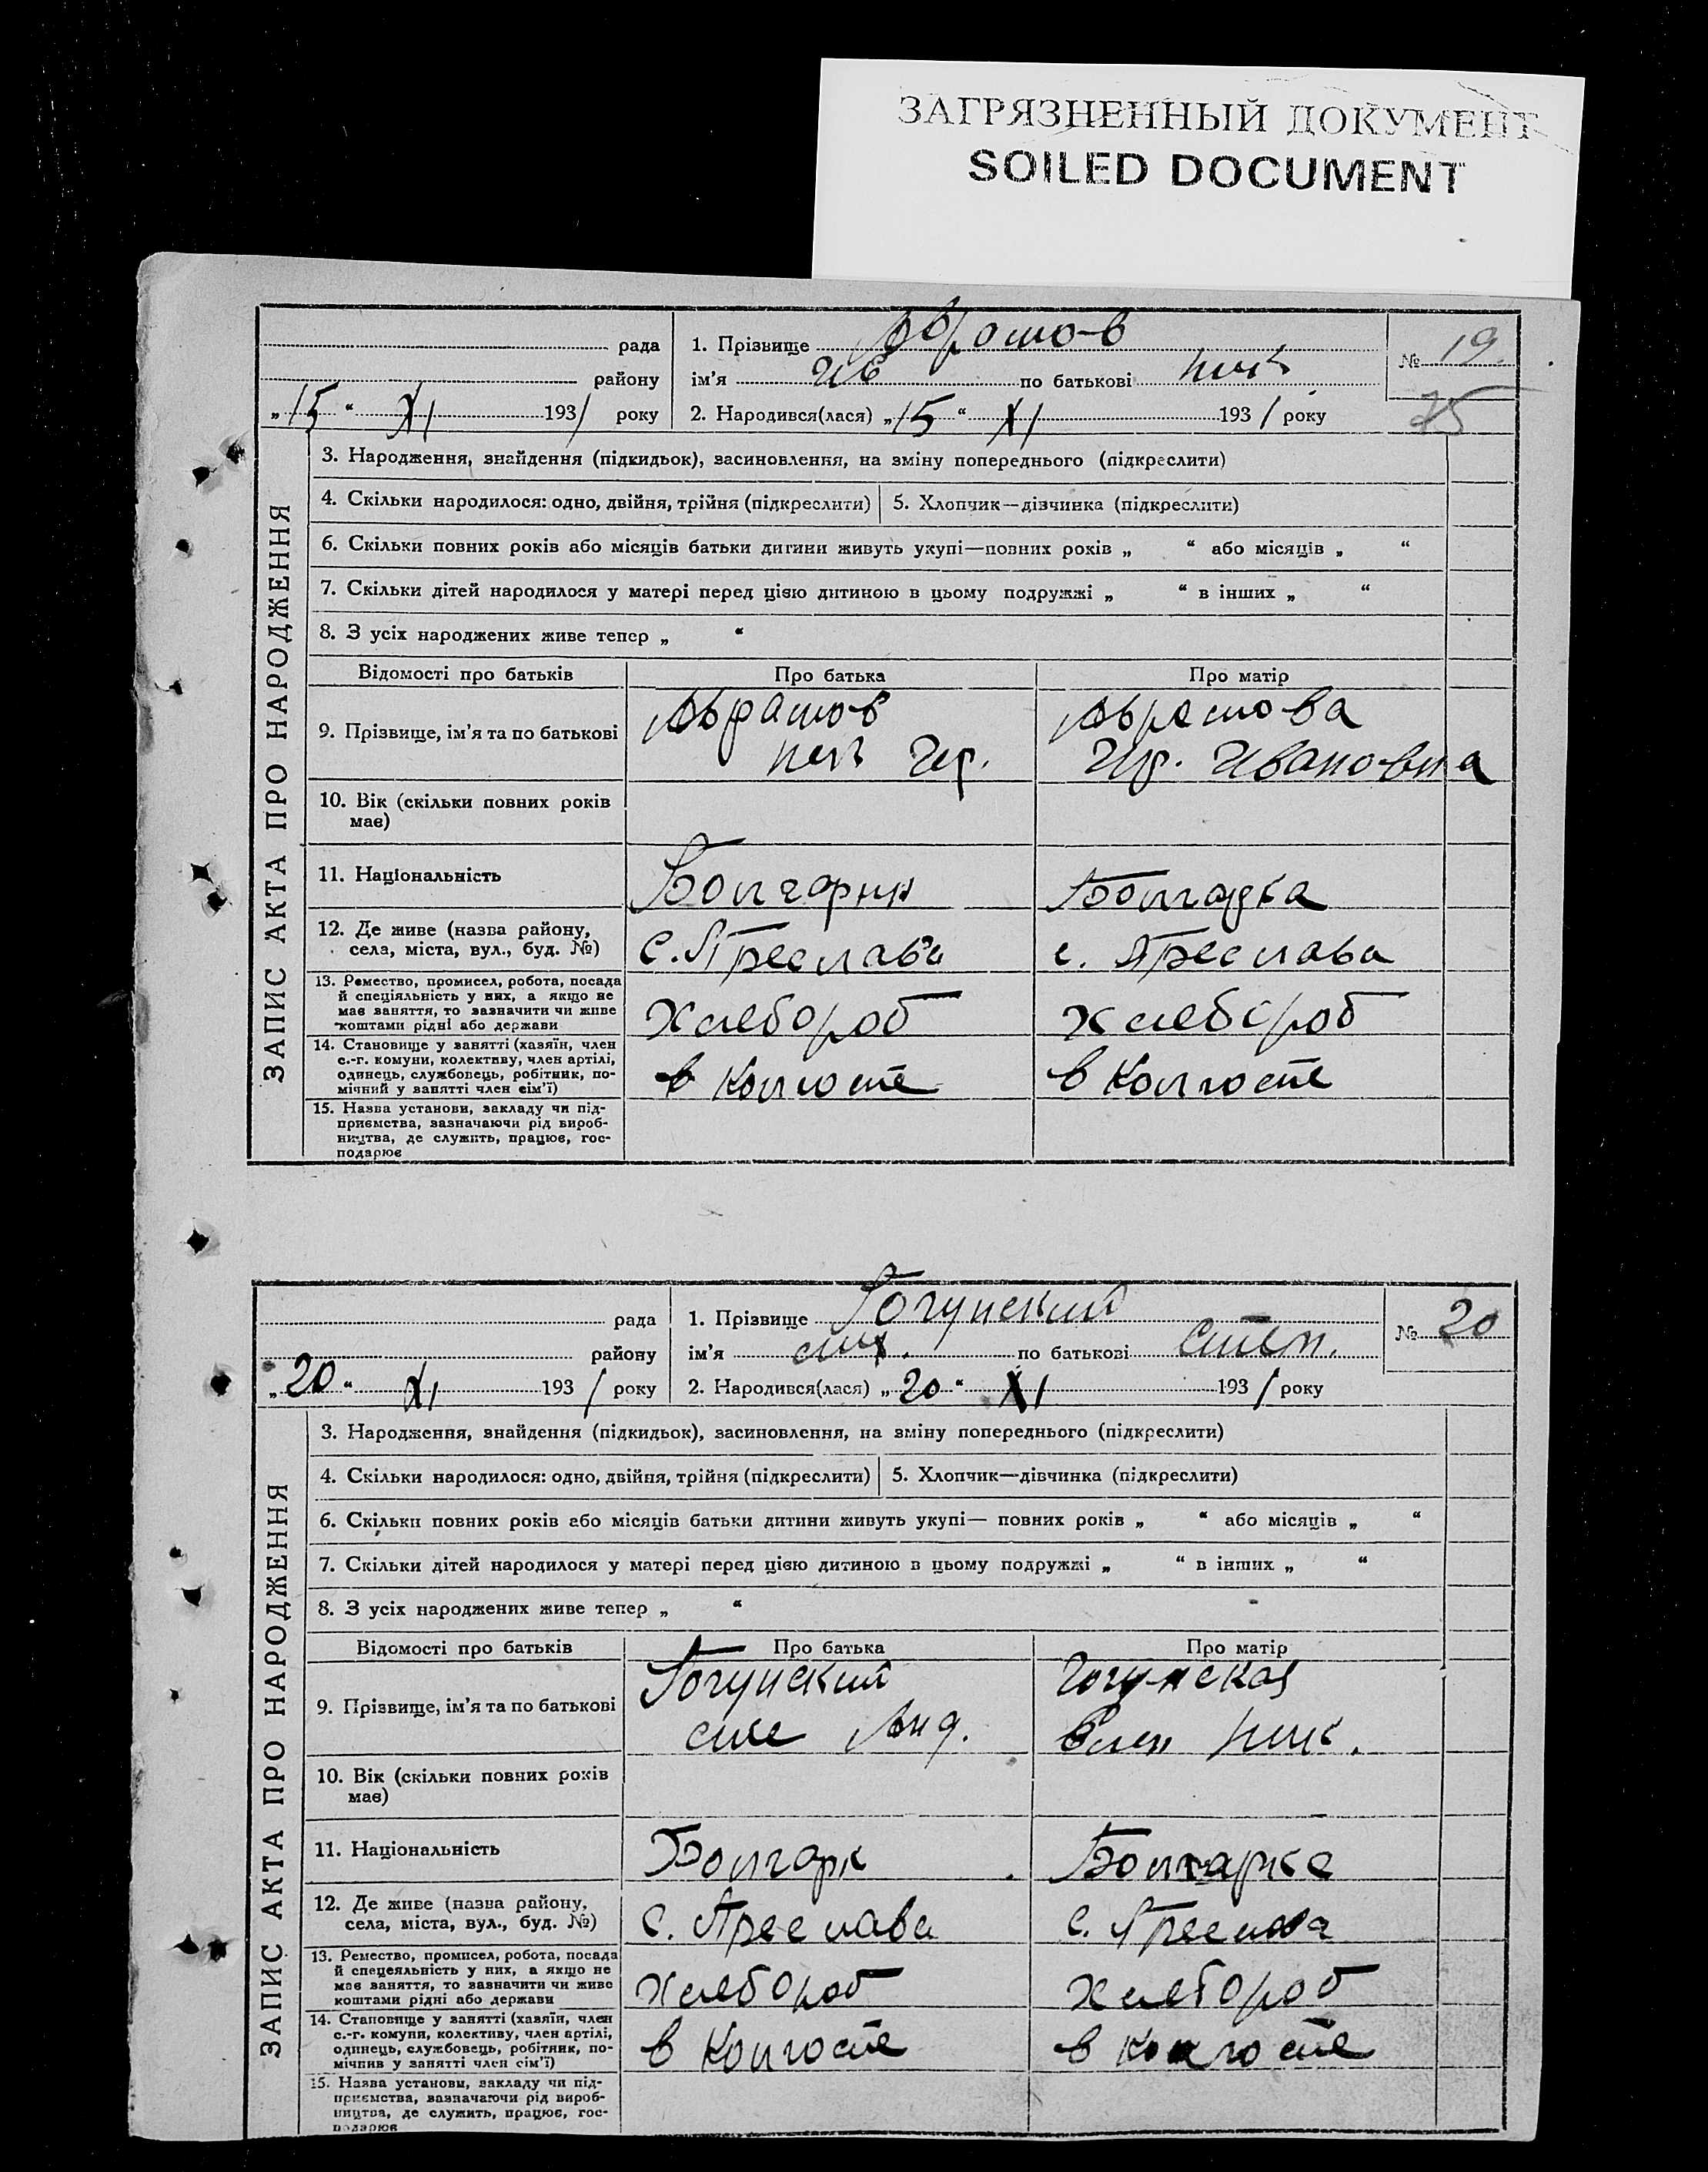 ЗАГРЯЗНЕННЫЙ ДОКУМЕНТ
SOILED DOCUMENT
ЗАПИС АКТА ПРО НАРОДЖЕННЯ
рада
району
„15“ XI 1931 року
1. Прізвище
ім'я Ив по батькові Ник
2. Народився(лася) „15“ XI 1931 року
№ 19
75
3. Народження, знайдення (підкидьок), засиновлення, на зміну попереднього (підкреслити)
4. Скільки народилося: одно, двійня, трійня (підкреслити) 5. Хлопчик—дівчинка (підкреслити)
6. Скільки повних років або місяців батьки дитини живуть укупі—повних років „ “ або місяців „ “
7. Скільки дітей народилося у матері перед цією дитиною в цьому подружжі „ “ в інших „ “
8. З усіх народжених живе тепер „ “
Відомості про батьків Про батька Про матір
9. Прізвище, ім'я та по батькові
Ивановна
10. Вік (скільки повних років
має)
11. Національність Болгарин Болгарка
12. Де живе (назва району,
села, міста, вул., буд. №) с. Преслава с. Преслава
13. Ремество, промисел, робота, посада
й специяльність у них, а якщо не
має заняття, то зазначити чи живе
коштами рідні або держави Хлебороб Хлебороб
14. Становище у занятті (хазяїн, член
с.-г. комуни, колективу, член артілі,
одинець, службовець, робітник, по-
мічний у занятті член сім'ї) в Колгоспе в Колгоспе
15. Назва установи, закладу чи під-
приємства, зазначаючи рід вироб-
ництва, де служить, працює, гос-
подарює
ЗАПИС АКТА ПРО НАРОДЖЕННЯ
рада
району
„20“ XI 1931 року
1. Прізвище Гогунский
ім'я по батькові Степ.
2. Народився(лася) „20“ XI 1931 року
№ 20
3. Народження, знайдення (підкидьок), засиновлення, на зміну попереднього (підкреслити)
4. Скільки народилося: одно, двійня, трійня (підкреслити) 5. Хлопчик—дівчинка (підкреслити)
6. Скільки повних років або місяців батьки дитини живуть укупі— повних років „ “ або місяців „ “
7. Скільки дітей народилося у матері перед цією дитиною в цьому подружжі „ “ в інших „ “
8. З усіх народжених живе тепер „ “
Відомості про батьків Про батька Про матір
Гогунский Гогунская
9. Прізвище, ім'я та по батькові
Анд. Елен Ник.
10. Вік (скільки повних років
має)
11. Національність Болгарк Болгарка
12. Де живе (назва району,
села, міста, вул., буд. №) с. Преслава с. Преслава
13. Ремество, промисел, робота, посада
й специяльність у них, а якщо не
має заняття, то зазначити чи живе
коштами рідні або держави Хлебороб Хлебороб
14. Становище у занятті (хазяїн, член
с.-г. комуни, колективу, член артілі,
одинець, службовець, робітник, по-
мічнив у занятті член сім'ї) в Колгоспе в Колгоспе
15. Назва установи, закладу чи під-
приємства, зазначаючи рід вироб-
ництва, де служить, працює, гос-
подарює